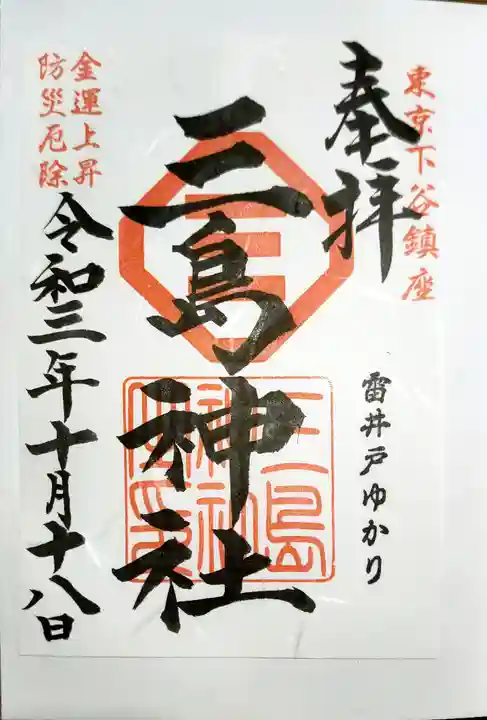 東京下谷鎮座
奉拝
雷井戸ゆかり
三島神社
三島
神社
金運上昇
防災厄除
令和三年十月十八日